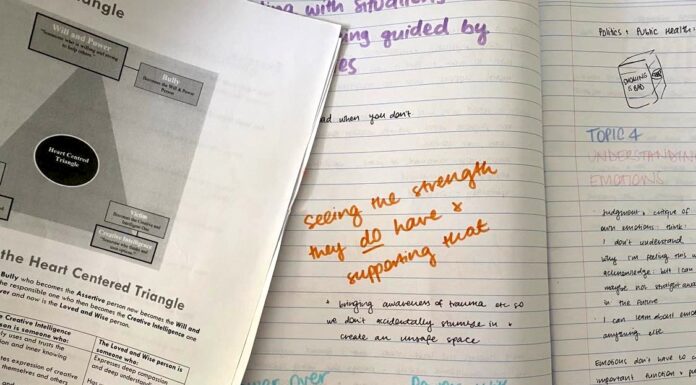 iangle
Will and Power
Bully
Becomes the Will & Power
Person
Heart Centred
Triangle
Victim
Creative Intelligence
the Heart Centred Triangle
Bully who becomes the Assertive person new becomes the Will and
the responsible one who then becomes the Creative Intelligence one
and now is the Loved and Wise person.
Creative Intelligence
is someone who:
uses and trusts the
and inner knowing
expression of creative
themselves and others
The Loved and Wise person is
someone who:
Expresses deep compassion
and deep understanding
with situations
guided by
when you don't
seeing the strength
they do have &
supporting that
bringing awareness of trauma etc so
we don't accidentally stumble in &
create an unsafe space
over
Politics & Public Health:
SMOKING
IS
BAD
TOPIC 4
UNDERSTANDING
EMOTIONS
Judgment & critique of
own emotions: think:
I don't understand
why I'm feeling this
acknowledge: but I can
maybe not straight
in the future
I can learn about
anything else
Emotions don't have to
important function &